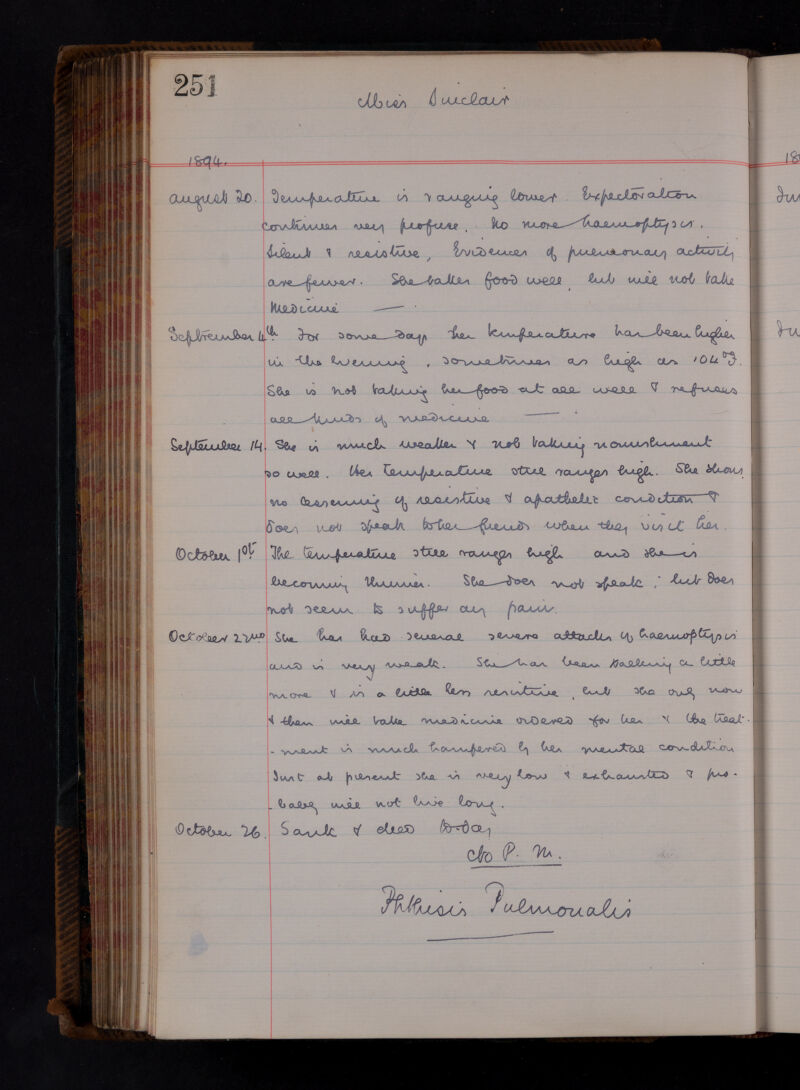 251
Miss Sinclair
1894.
18
August 20. Temperature is ranging lower. Expectoration
continues very profuse. No more haemoptysis.
Silent & resistive, Evidences of pulmonary activity
are fewer. She takes food well, but will not take
Medicine —
September 4th For some days her temperature has been higher
in the evening, sometimes as high as 104°F.
She is not taking her food at all well & refuses
all kinds of medicine —
September 14. She is much weaker & not taking nourishment
so well. Her temperature still ranges high. She shows
no lessening of resistive & apathetic condition &
does not speak to her friends when they visit her.
October 1st The temperature still ranges high and she is
becoming thinner. She does not speak; but does
not seem to suffer any pain.
October 22nd She has had several severe attacks of haemoptysis
and is very weak. She has been talking a little
more & is a little less resistive, but she only now
& then will take medicine ordered for her & the treat-
-ment is much hampered by her mental condition
Just at present she is very low & exhausted & pro-
-bably will not live long.
October 26. Sank & died to-day
No P. M.
Phthisis Pulmonalis